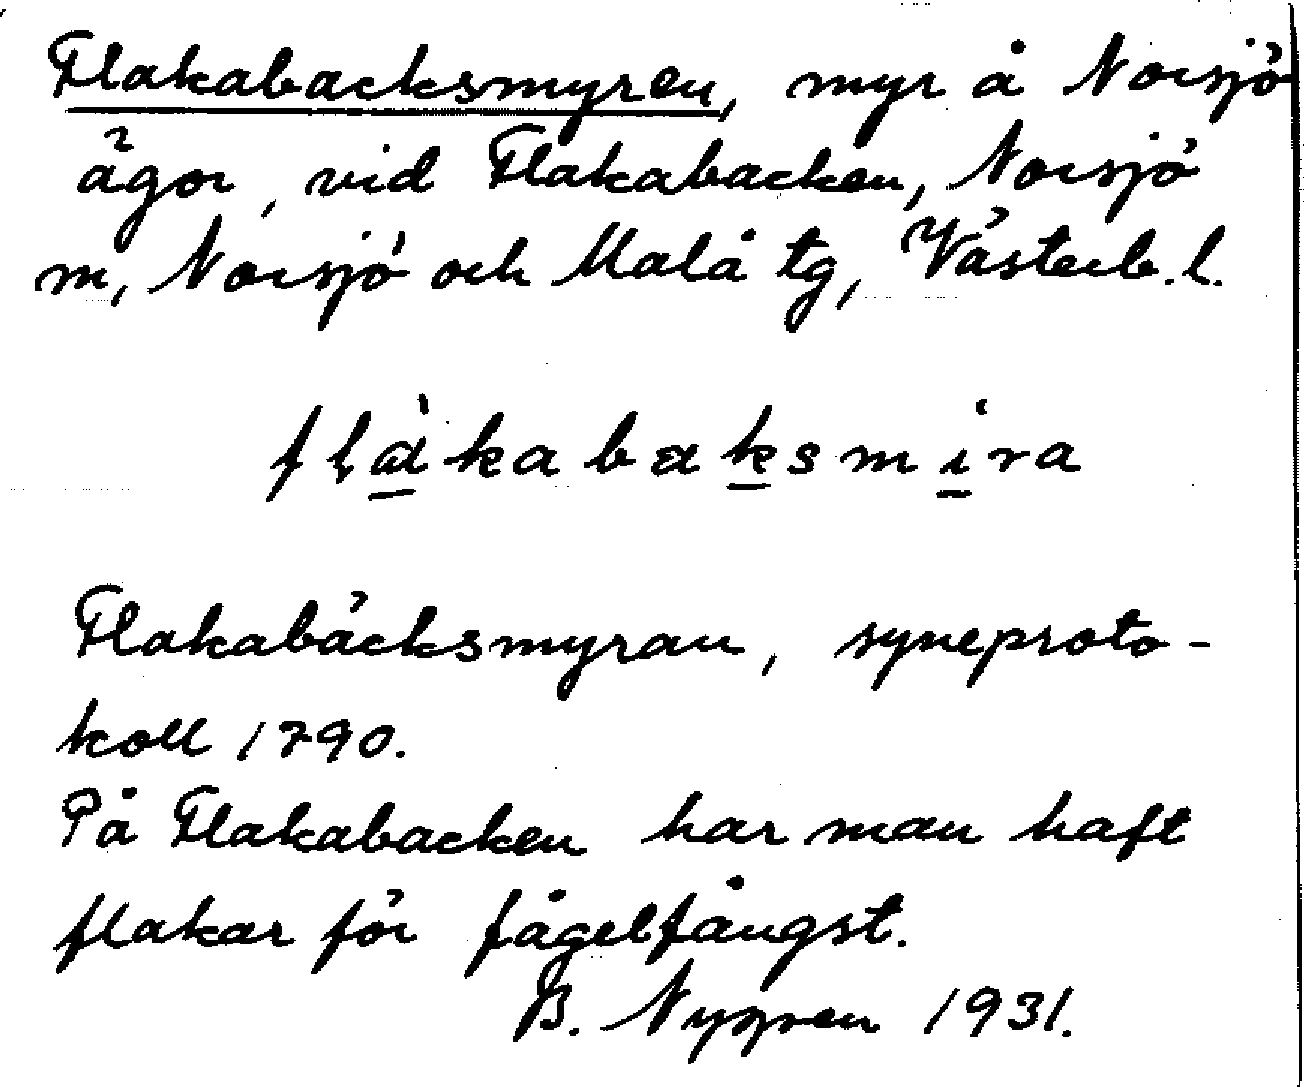 Flakabacksmyren, myr å Norsjö
ägor, vid Flakabacken, Norsjö
m, Norsjö och Malå tg, Västerb. l.
flàkabaksmira
Flakabäcksmyran, syneproto-
koll 1790.
På Flakabacken har man haft
flakar för fågelfångst.
B. Nygren 1931.